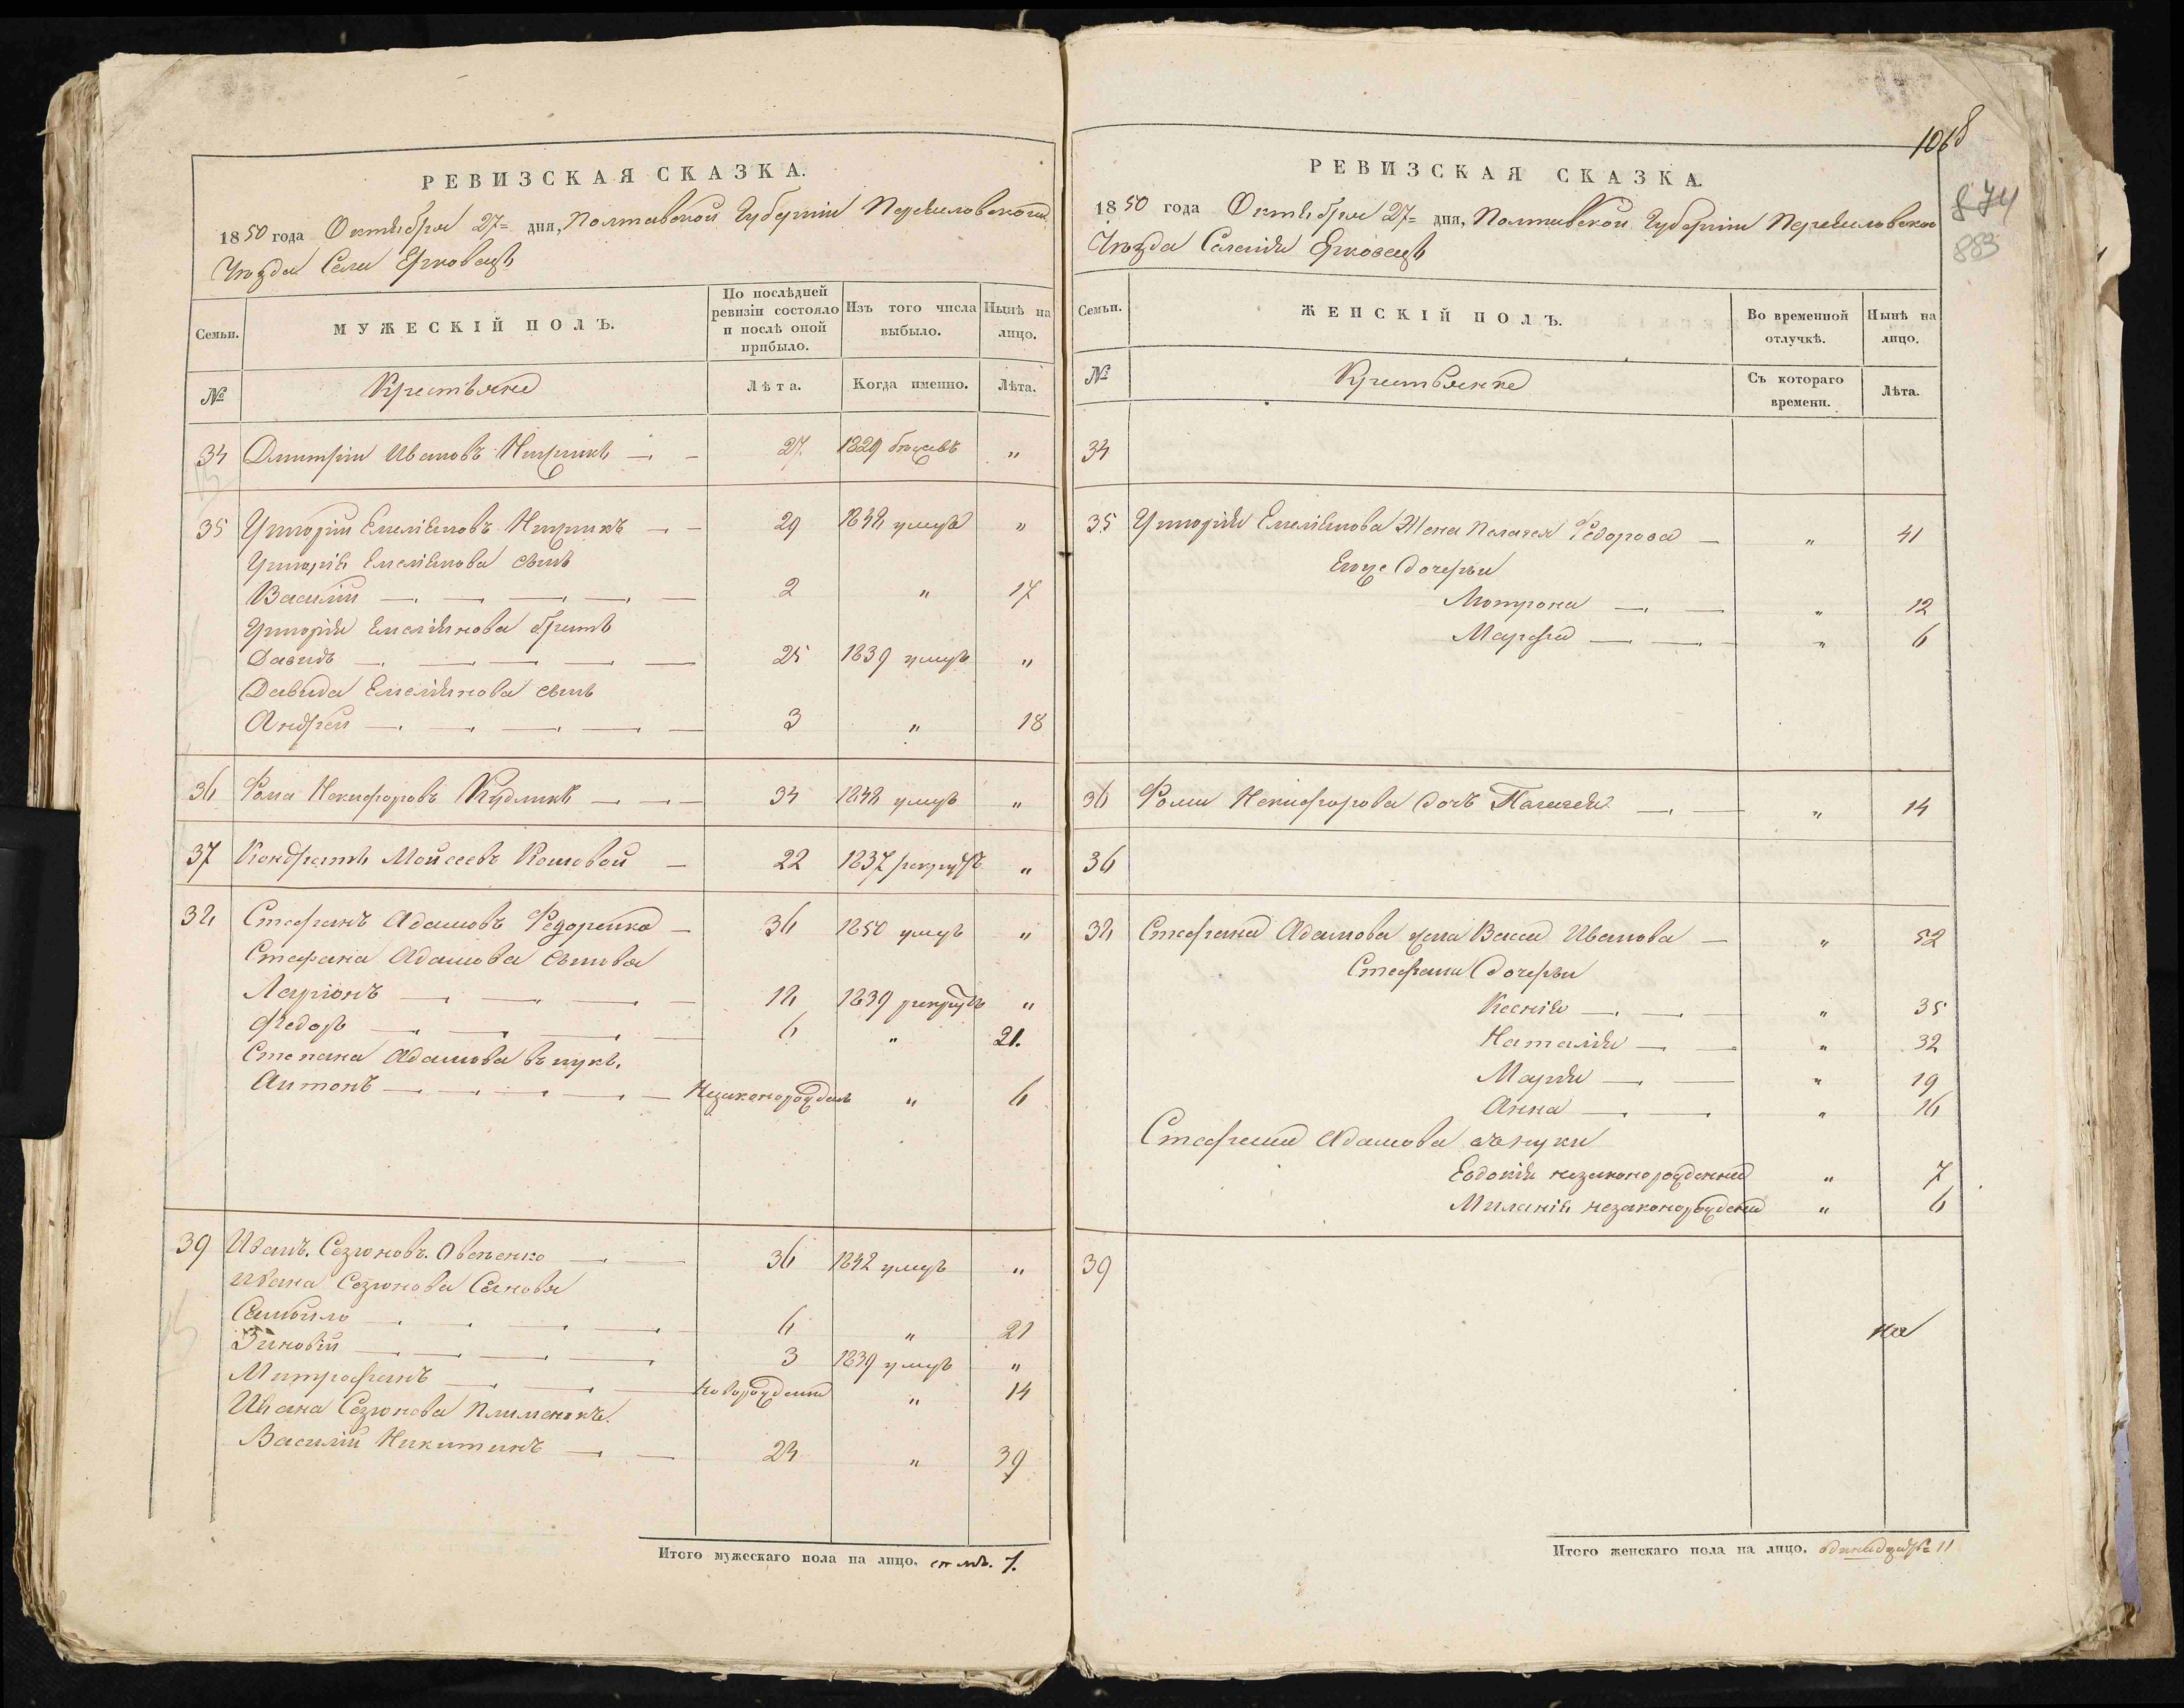 РЕВИЗСКАЯ СКАЗКА.
1850 года Октября 27 = дня, Полтавской Губерніи Переяловского
Уезда Села Ерковецъ
Семьи.
МУЖЕСКІЙ ПОЛЪ.
По послѣдней ревизіи состояло и послѣ оной прибыло.
Изъ того числа выбыло.
Нынѣ на лицо.
№
Крестьяне
Лѣта.
Когда именно.
Лѣта.
34 Дмитрій Ивановъ 27. 1829 "
35 Григорій Емеліяновъ 29 1848 умеръ "
Григорія Емеліянова сынъ
Василій 2 " 17
Григорія Емеліянова братъ
Давидъ 25 1839 умеръ "
Давида Емеліянова сынъ
Андрей 3 " 18
36 Фома Никифоровъ Кудликъ 34 1848 умеръ "
37 Кондратъ Мойсеевъ Кошовой 22 1837 рекрутъ "
38 Стефанъ Адамовъ Федоренко 36 1850 умеръ "
Стефана Адамова сынья
Ларіонъ 18 1839 рекрутъ "
Федоръ 6 " 21.
Степана Адамова внукъ.
Антонъ Незаконорожденъ " 6
39 Иванъ. Созоновъ. 36 1842 умеръ "
Ивана Созонова Сыновя
Самойло 6 " 21
Зиновій 3 1839 умеръ "
Митрофанъ новорожденны " 14
Ивана Созонова Плименикъ.
Василій Никитинъ 24 " 39
Итого мужескаго пола на лицо. 7.
106
874
883
РЕВИЗСКАЯ СКАЗКА.
1850 года Октября 27 = дня, Полтавской Губерніи Переяловского
Уезда Селенія Ерковецъ
Семьи.
ЖЕНСКІЙ ПОЛЪ.
Во временной отлучкѣ.
Нынѣ на лицо.
№
Крестьянке
Съ котораго времени.
Лѣта.
34
35 Григорія Емеліянова Жена Пелагея Федорова " 41
Егоже Дочерьи
Мотрона " 12
Марфа " 6
36 Фомы Никифорова дочъ Палагея " 14
36
38 Стефана Адамова жена Васа Иванова " 52
Стефана Дочерьи
Ксенія " 35
Наталія " 32
Марія " 19
Анна " 16
Стефана Адамова внуки
Евдокія незаконорожденна " 7
Миланія незаконорождена " 6
39
на
Итого женскаго пола на лицо. одинадцать 11